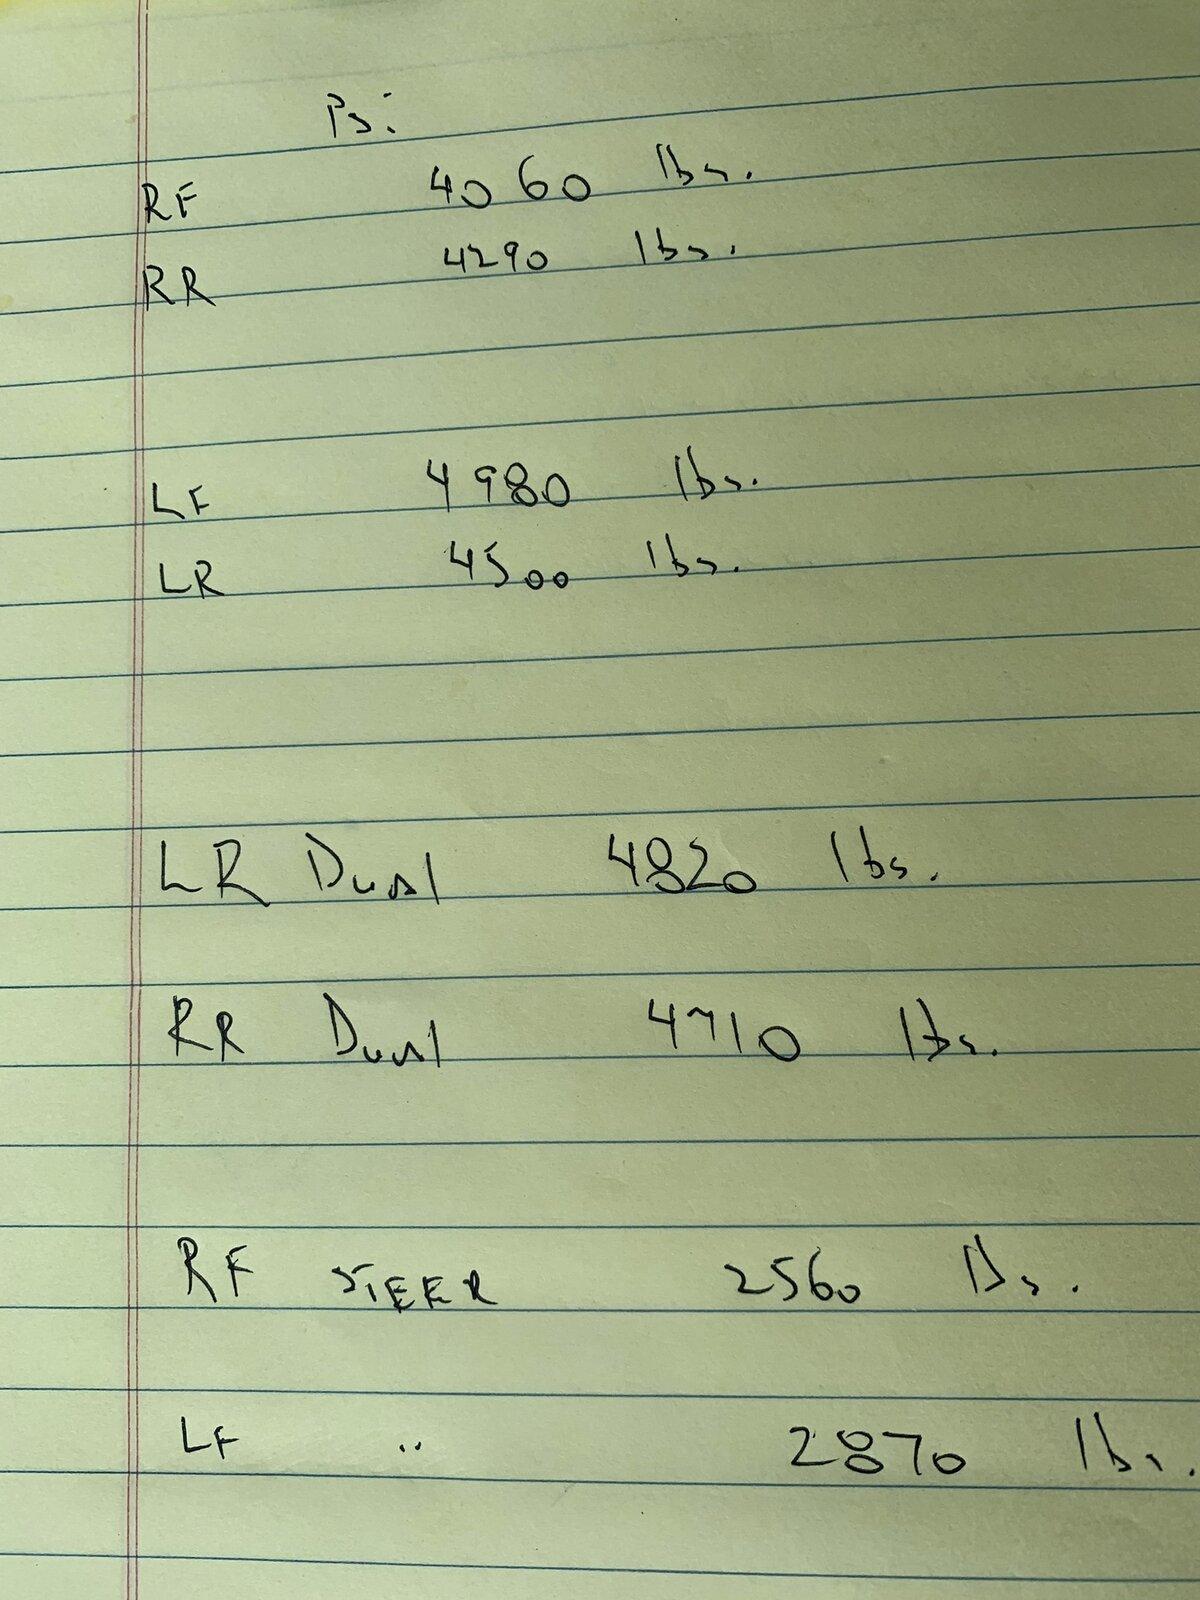 Psi
RF 4060 lbs.
RR 4290 lbs.
LF 4980 lbs.
LR 4500 lbs.
LR Dual 4820 lbs.
RR Dual 4710 lbs.
RF STEER 2560 lbs.
LF " 2870 lbs.